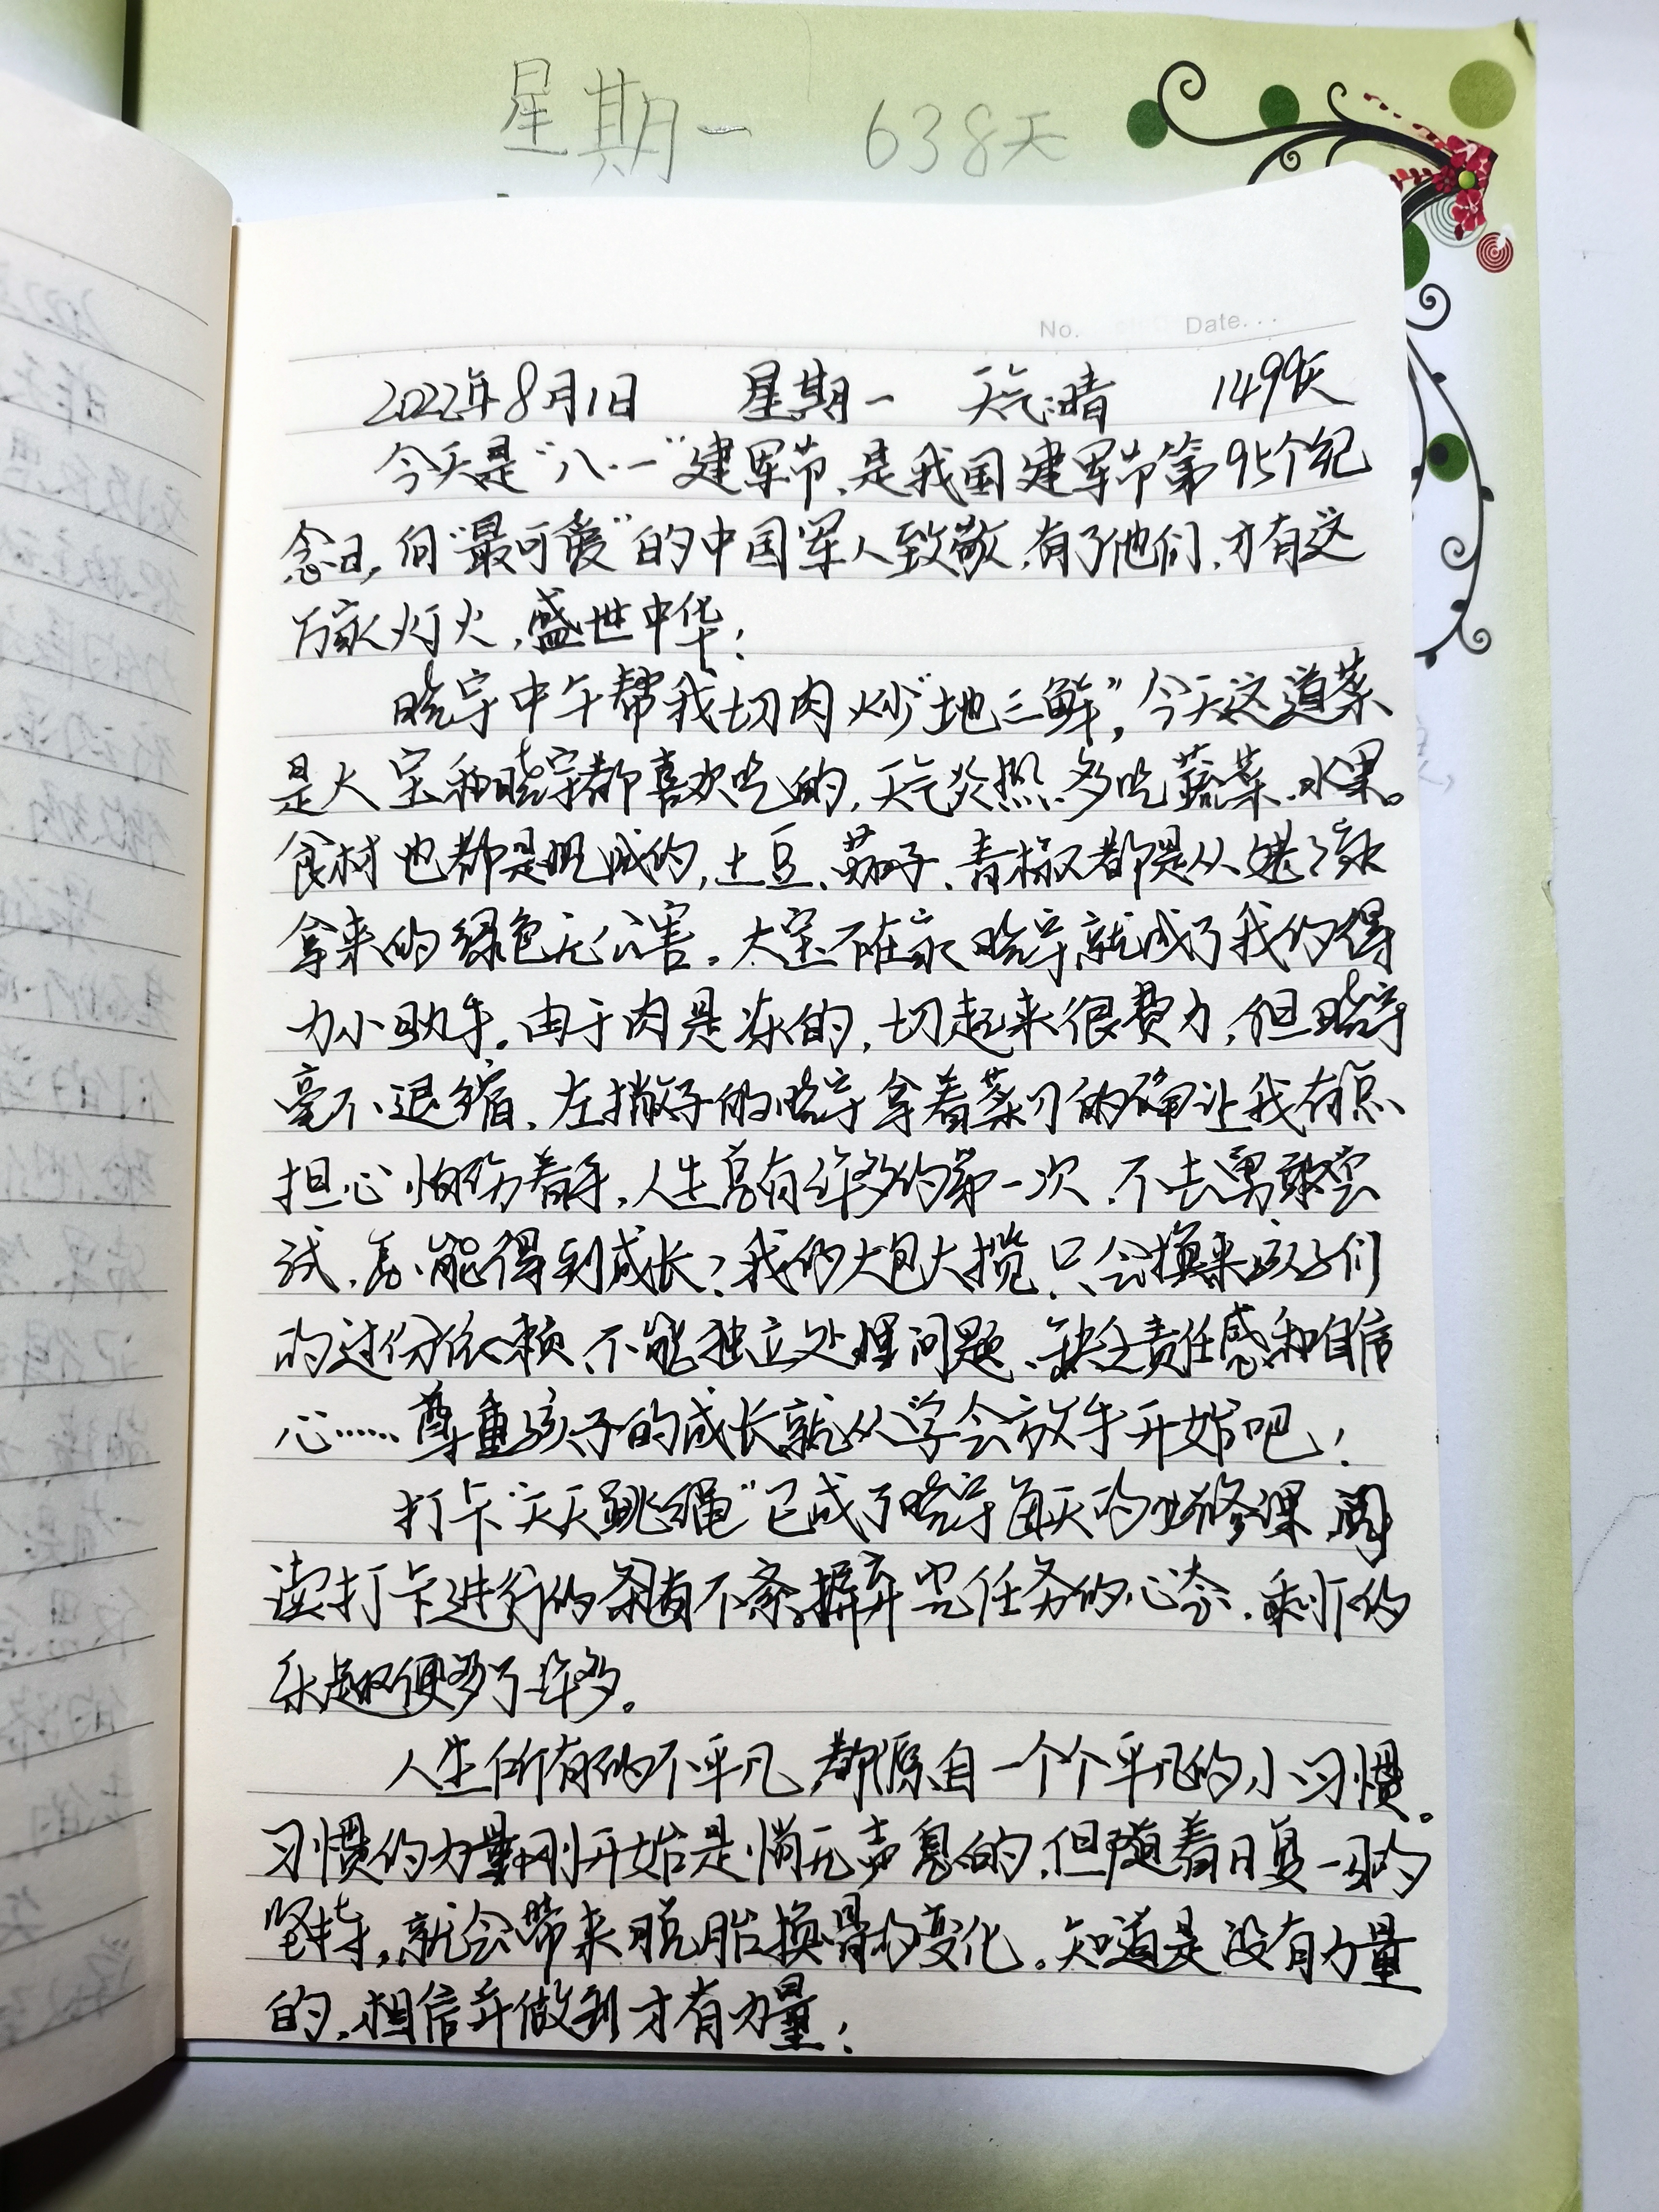 星期一 638天
No. Date...
2022年8月1日 星期一 天气:晴 1499天
今天是“八·一”建军节,是我国建军节第95个纪
念日,向“最可爱”的中国军人致敬,有了他们,才有这
万家灯火,盛世中华!
晓宇中午帮我切肉炒“地三鲜”,今天这道菜
是大宝和晓宇都喜欢吃的,天气炎热、多吃蔬菜、水果。
食材也都是现成的,土豆、茄子、青椒都是从姥家
拿来的绿色无公害。大宝不在家晓宇就成了我的得
力小助手。由于肉是冻的,切起来很费力,但晓宇
毫不退缩、左撇子的晓宇拿着菜刀的确让我有点
担心怕伤着手,人生总有许多的第一次,不去勇敢尝
试,怎能得到成长?我的大包大揽只会换来孩子们
的过份依赖、不能独立处理问题、缺乏责任感和自信
心……尊重孩子的成长就从学会放手开始吧!
打卡“天天跳绳”已成了晓宇每天的必修课,阅
读打卡进行的有条不紊,摒弃完任务的心态,剩下的
乐趣便多了许多。
人生所有的不平凡,都源自一个个平凡的小习惯。
习惯的力量刚开始是悄无声息的,但随着日复一日的
坚持,就会带来脱胎换骨的变化。知道是没有力量
的,相信并做到才有力量!